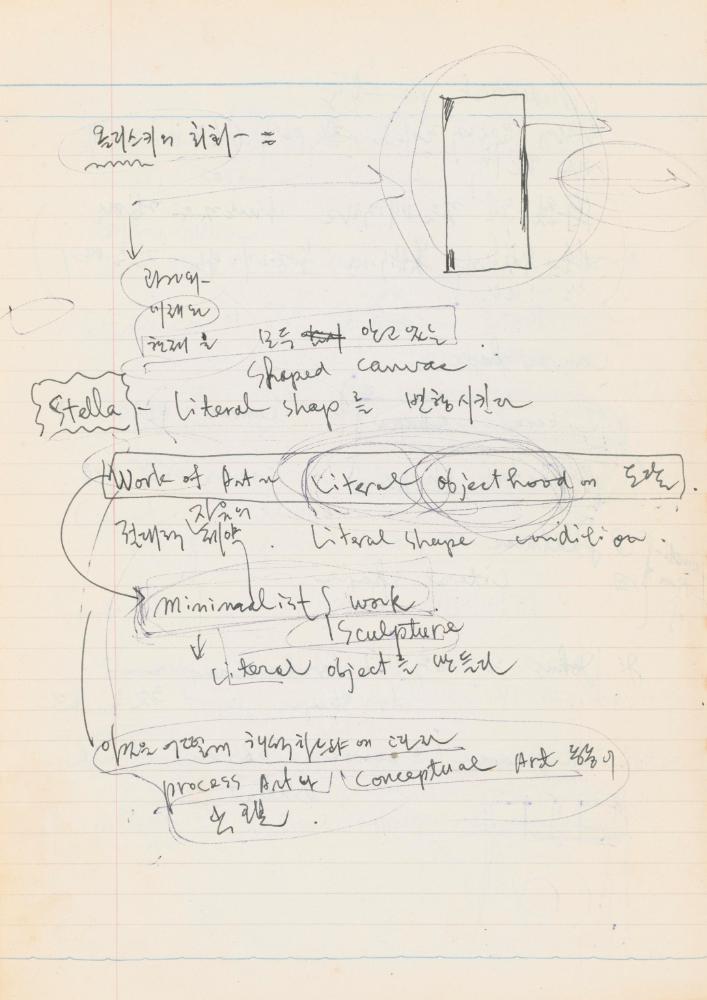 올리스키의 회화 =
과거와
미래와
현재를 모두 안고 있는
Shaped canvas
Stella - Literal shap를 변형시킨다
Work of Art가 Literal objecthood에 도달
절대적 제약. Literal shape condition.
Minimalist work
Sculpture
Literal object를 만든다
이것을 어떻게 해석하느냐에 따라
process Art와 Conceptual Art 등등이